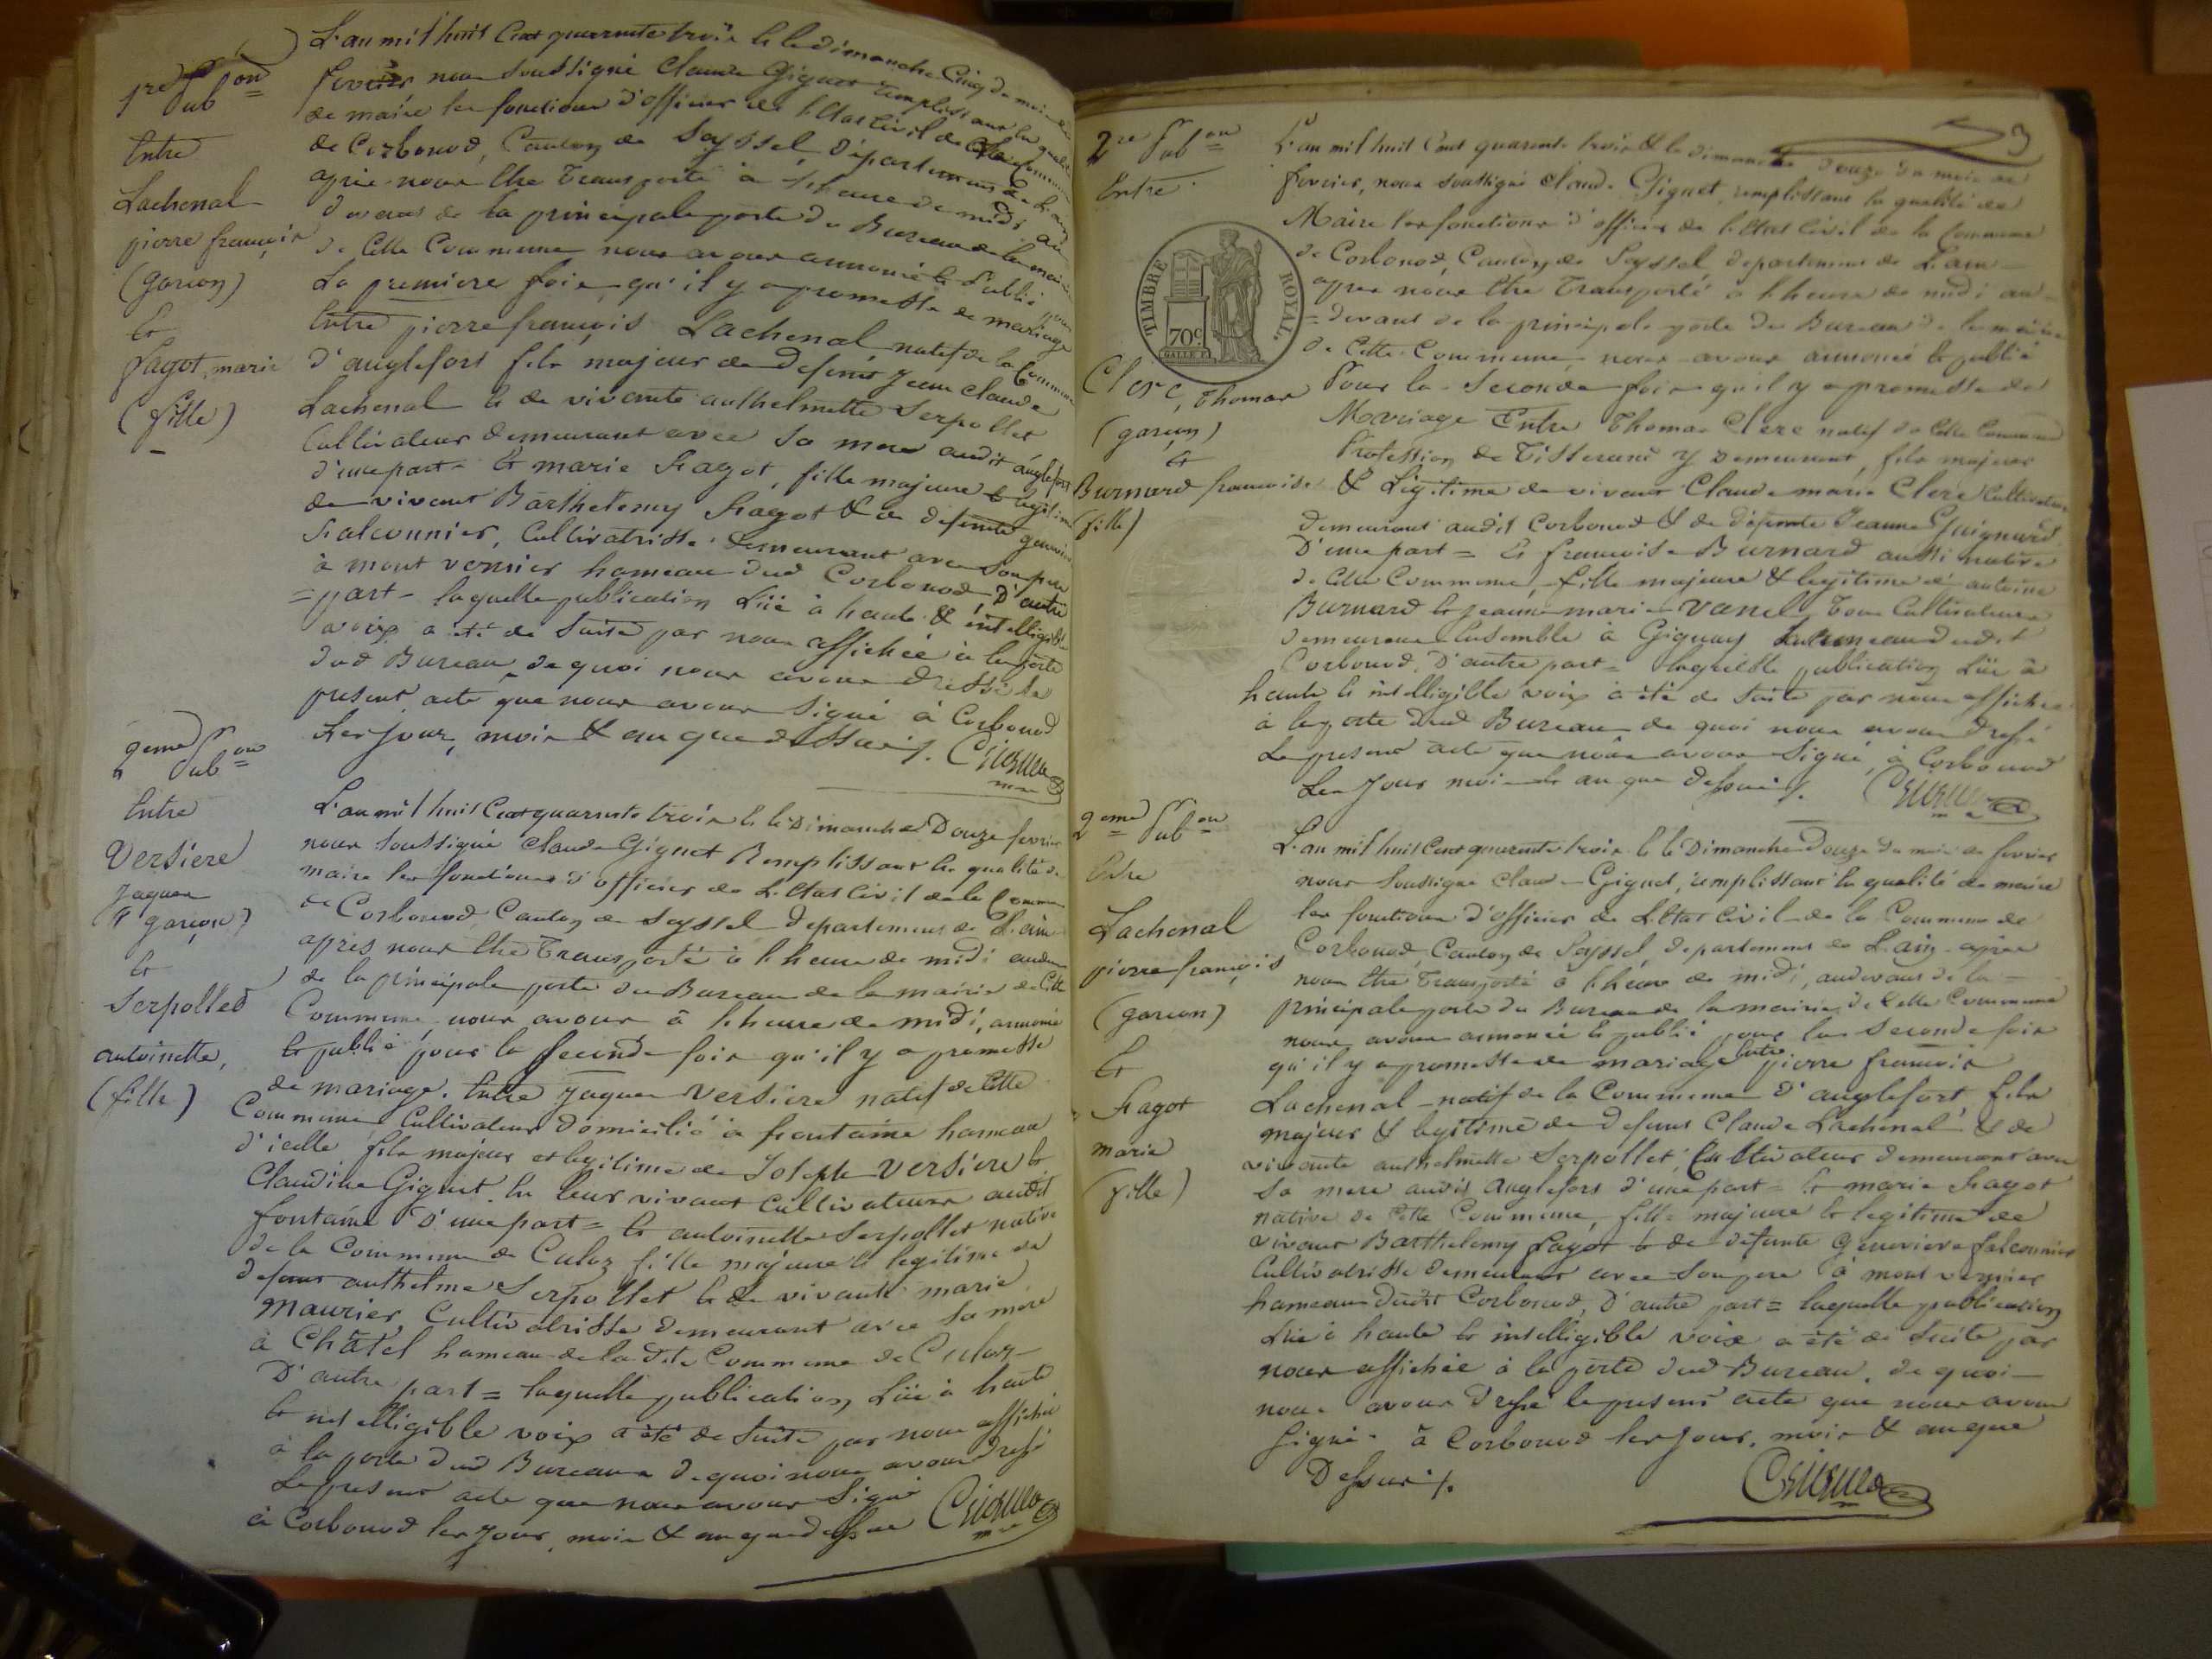 1re Pubon
Entre
Lachenal
pierre françois
(garçon)
&
Fagot, marie
(fille)
L'an mil huit Cent quarante trois & le dimanche Cinq du mois de
fevrier, nous soussigné Claude Gignet remplissant la qualité
de maire les fonctions d'officier de l'Etat Civil de la Commune
de Corbonod, Canton de Seyssel, département de L'ain
après nous être transporté à l'heure de midi au
devant de la principale porte du Bureau de la mairie
de Cette Commune nous avons annoncé & Publié pour
La premiere fois qu'il y a promesse de mariage
Entre pierre françois Lachenal natif de la Commune
d'anglefort fils majeur de Defunt Jean Claude
Lachenal & de vivante anthelmette Serpollet
Cultivateur demeurant avec sa mere audit anglefort
d'une part = & marie Fagot, fille majeure & légitime
de vivant Barthelemy Fagot & de defunte genevieve
Falconnier, Cultivatrisse demeurant avec son pere
à mont vernier hameau dud Corbonod D'autre
=part= laquelle publication Lüe à haute & intelligible
voix a été de suite par nous affichée à la porte
dud Bureau, de quoi nous avons dressé le
present acte que nous avons signé à Corbonod
Les jour, mois & an que dessus ;.
2eme Pubon
Entre
Versiere
Jaques
(garçon)
&
Serpollet
antoinette,
(fille)
L'an mil huit Cent quarante trois & le Dimanche Douze fevrier
nous soussigné Claude Gignet Remplissant la qualité de
maire les fonctions d'officier de L'Etat Civil de la Commune
de Corbonod Canton de Seyssel departement de L'ain
après nous être transporté à l'heure de midi audevant
de la principale porte du Bureau de la mairie de Cette
Commune, nous avons à l'heure de midi, annoncé
& publié pour la seconde fois qu'il y a promesse
de mariage. Entre Jaques Versiere natif de Cette
Commune Cultivateur domicilié à fontaine hameau
d'icelle fils majeur et legitime de Joseph Versiere &
Claudine Gignet. En leur vivant Cultivateurs audit
fontaine D'une part = & antoinette Serpollet native
de la Commune de Culoz fille majeure & legitime de
defunt anthelme Serpollet & de vivante marie
Maurier, Cultivatrisse demeurant avec sa mère
à Châtel hameau de la dite Commune de Culoz
D'autre part = laquelle publication Lüe à haute
& intelligible voix a été de suite par nous affichée
à la porte dud Bureau de quoi nous avons dressé
Le present acte que nous avons signé
à Corbonod les jour, mois & an que dessus
3
2re Pubon
Entre
TIMBRE ROYAL
70c
Clerc, Thomas
(garçon)
&
Burnard françoise
(fille)
L'an mil huit Cent quarante trois & le dimanche Douze du mois de
fevrier, nous soussigné Claude Gignet, remplissant la qualité de
Maire les fonctions d'officier de l'Etat Civil de la Commune
de Corbonod, Canton de Seyssel, departement de L'ain
apres nous être transporté à l'heure de midi au=
=devant de la principale porte du Bureau de la mairie
de Cette Commune, nous avons annoncé & publié
Pour la seconde fois qu'il y a promesse de
Mariage Entre Thomas Clerc natif de Cette Commune
Profession de Tisserand y demeurant, fils majeur
& Légitime de vivant Claude marie Clerc Cultivateur
Demeurant audit Corbonod & de défunte Jeanne Guignard
D'une part = & françoise Burnard aussi native
de Cette Commune, fille majeure & legitime d'antoine
Burnard & jeanne marie Vanel, tous Cultivateurs
demeurant Ensemble à Gignay hameau dudit
Corbonod, D'autre part = laquelle publication Lüe à
haute & intelligible voix a été de suite par nous affichée
à la porte dud Bureau de quoi nous avons dressé
Le present acte que nous avons signé, à Corbonod
Les jour mois & an que dessus ;.
2eme Pubon
Entre
Lachenal
pierre françois
(garçon)
&
Fagot
marie
(fille)
L'an mil huit Cent quarante trois & le Dimanche Douze du mois de fevrier
nous soussigné Claude Gignet, remplissant la qualité de maire
les fonctions d'officier de L'Etat Civil de la Commune de
Corbonod, Canton de Seyssel, departement de L'ain après
nous être transporté à l'heure de midi, audevant de la
principale porte du Bureau de la mairie de Cette Commune
nous avons annoncé & publié pour la seconde fois
qu'il y a promesse de mariage Entre pierre françois
Lachenal natif de la Commune d'anglefort fils
majeur & legitime de Defunt Claude Lachenal & de
vivante anthelmette Serpollet, Cultivateur demeurant avec
sa mere audit anglefort d'une part = & marie Fagot
native de Cette Commune, fille majeure & legitime de
vivant Barthelemy Fagot & de defunte Genevieve falconnier
Cultivatrisse demeurant avec son pere à mont vernier
hameau dudit Corbonod, D'autre part = laquelle publication
Lüe à haute & intelligible voix a été de suite par
nous affichée à la porte dud Bureau, de quoi
nous avons dressé le present acte que nous avons
signé à Corbonod les jour, mois & an que
Dessus ;.